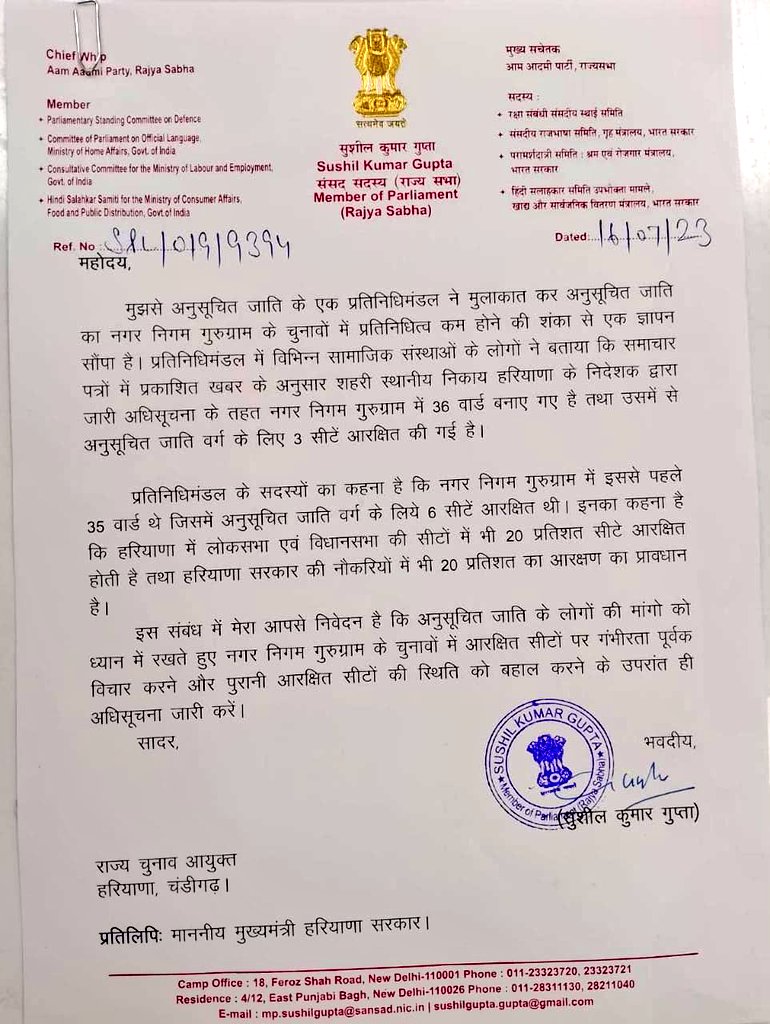 Chief Whip
Aam Aadmi Party, Rajya Sabha
Member
+ Parliamentary Standing Committee on Defence
+ Committee of Parliament on Official Language,
Ministry of Home Affairs, Govt. of India
+ Consultative Committee for the Ministry of Labour and Employment,
Govt. of India
+ Hindi Salahkar Samiti for the Ministry of Consumer Affairs,
Food and Public Distribution, Govt. of India
सत्यमेव जयते
सुशील कुमार गुप्ता
Sushil Kumar Gupta
संसद सदस्य (राज्य सभा)
Member of Parliament
(Rajya Sabha)
मुख्य सचेतक
आम आदमी पार्टी, राज्यसभा
सदस्य :
+ रक्षा संबंधी संसदीय स्थाई समिति
+ संसदीय राजभाषा समिति, गृह मंत्रालय, भारत सरकार
+ परामर्शदात्री समिति : श्रम एवं रोजगार मंत्रालय,
भारत सरकार
+ हिंदी सलाहकार समिति उपभोक्ता मामले,
खाद्य और सार्वजनिक वितरण मंत्रालय, भारत सरकार
Ref. No : SPL/019/9394
Dated:....16/07/23
महोदय,
मुझसे अनुसूचित जाति के एक प्रतिनिधिमंडल ने मुलाकात कर अनुसूचित जाति
का नगर निगम गुरुग्राम के चुनावों में प्रतिनिधित्व कम होने की शंका से एक ज्ञापन
सौंपा है। प्रतिनिधिमंडल में विभिन्न सामाजिक संस्थाओं के लोगों ने बताया कि समाचार
पत्रों में प्रकाशित खबर के अनुसार शहरी स्थानीय निकाय हरियाणा के निदेशक द्वारा
जारी अधिसूचना के तहत नगर निगम गुरुग्राम में 36 वार्ड बनाए गए है तथा उसमें से
अनुसूचित जाति वर्ग के लिए 3 सीटें आरक्षित की गई है।
प्रतिनिधिमंडल के सदस्यों का कहना है कि नगर निगम गुरुग्राम में इससे पहले
35 वार्ड थे जिसमें अनुसूचित जाति वर्ग के लिये 6 सीटें आरक्षित थी। इनका कहना है
कि हरियाणा में लोकसभा एवं विधानसभा की सीटों में भी 20 प्रतिशत सीटे आरक्षित
होती है तथा हरियाणा सरकार की नौकरियों में भी 20 प्रतिशत का आरक्षण का प्रावधान
है।
इस संबंध में मेरा आपसे निवेदन है कि अनुसूचित जाति के लोगों की मांगो को
ध्यान में रखते हुए नगर निगम गुरुग्राम के चुनावों में आरक्षित सीटों पर गंभीरता पूर्वक
विचार करने और पुरानी आरक्षित सीटों की स्थिति को बहाल करने के उपरांत ही
अधिसूचना जारी करें।
सादर,
भवदीय,
★ SUSHIL KUMAR GUPTA ★
Member of Parliament (Rajya Sabha)
(सुशील कुमार गुप्ता)
राज्य चुनाव आयुक्त
हरियाणा, चंडीगढ़।
प्रतिलिपिः माननीय मुख्यमंत्री हरियाणा सरकार।
Camp Office : 18, Feroz Shah Road, New Delhi-110001 Phone : 011-23323720, 23323721
Residence : 4/12, East Punjabi Bagh, New Delhi-110026 Phone : 011-28311130, 28211040
E-mail : mp.sushilgupta@sansad.nic.in | sushilgupta.gupta@gmail.com